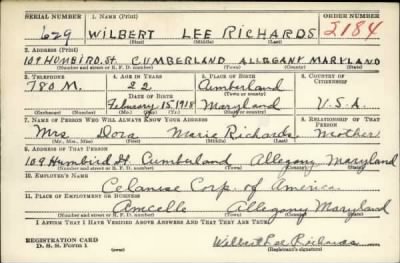 SERIAL NUMBER 1. NAME (Print) ORDER NUMBER
629 WILBERT LEE RICHARDS 2184
(First) (Middle) (Last)
2. ADDRESS (Print)
109 HUMBIRD. St. CUMBERLAND ALLEGANY MARYLAND
(Number and street or R. F. D. number) (Town) (County) (State)
3. TELEPHONE 4. AGE IN YEARS 5. PLACE OF BIRTH 6. COUNTRY OF CITIZENSHIP
780 M. 22 Cumberland
DATE OF BIRTH (Town or county)
February 15, 1918 Maryland U.S.A.
(Exchange) (Number) (Mo.) (Day) (Yr.) (State or country)
7. NAME OF PERSON WHO WILL ALWAYS KNOW YOUR ADDRESS 8. RELATIONSHIP OF THAT PERSON
Mrs. Dora Marie Richards Mother
(Mr., Mrs., Miss) (First) (Middle) (Last)
9. ADDRESS OF THAT PERSON
109 Humbird St. Cumberland Allegany Maryland
(Number and street or R. F. D. number) (Town) (County) (State)
10. EMPLOYER'S NAME
Celanese Corp. of America
11. PLACE OF EMPLOYMENT OR BUSINESS
Amcelle Allegany Maryland
(Number and street or R. F. D. number) (Town) (County) (State)
I AFFIRM THAT I HAVE VERIFIED ABOVE ANSWERS AND THAT THEY ARE TRUE.
REGISTRATION CARD
D. S. S. Form 1 Wilbert Lee Richards
(Registrant's signature)